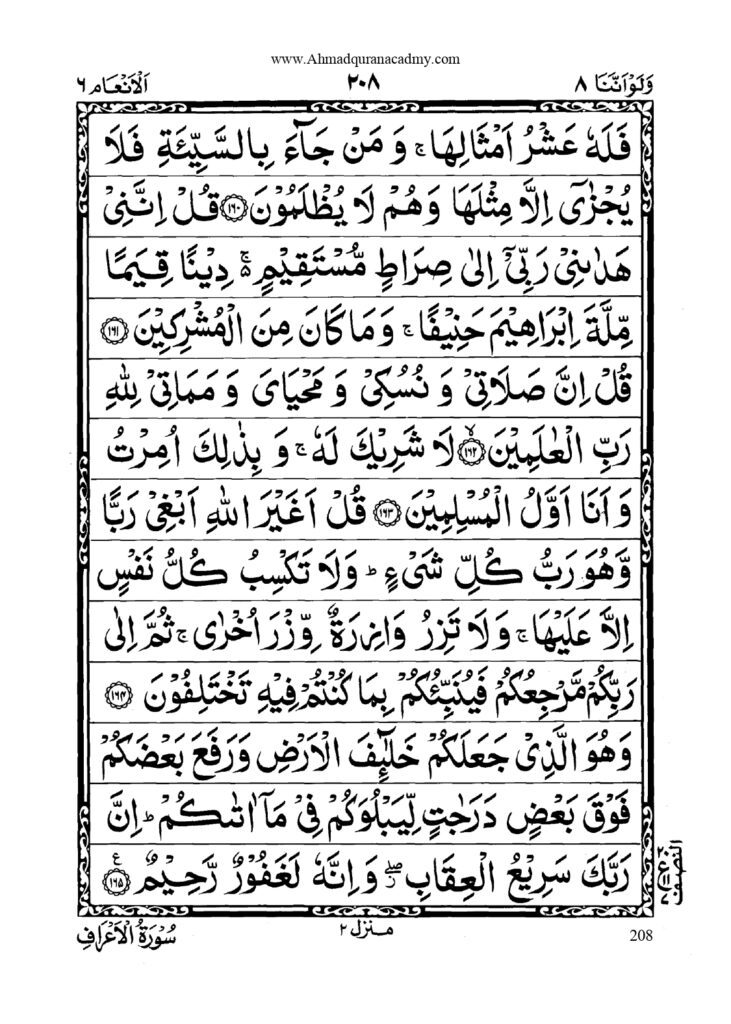 www.Ahmadquranacadmy.com
وَلَوْاَنَّنَا ٨ ٢٠٨ اَلْاَنْعَام ٦
فَلَهٗ عَشْرُ اَمْثَالِهَا ۚ وَ مَنْ جَآءَ بِالسَّيِّئَةِ فَلَا
يُجْزٰٓى اِلَّا مِثْلَهَا وَهُمْ لَا يُظْلَمُوْنَ ﴿۱۶۰﴾ قُلْ اِنَّنِىْ
هَدٰىنِىْ رَبِّىْۤ اِلٰى صِرَاطٍ مُّسْتَقِيْمٍ ۬ۚ دِيْنًا قِيَمًا
مِّلَّةَ اِبْرٰهِيْمَ حَنِيْفًا ۚ وَ مَا كَانَ مِنَ الْمُشْرِكِيْنَ ﴿۱۶۱﴾
قُلْ اِنَّ صَلَاتِىْ وَ نُسُكِىْ وَ مَحْيَاىَ وَ مَمَاتِىْ لِلّٰهِ
رَبِّ الْعٰلَمِيْنَ ﴿۱۶۲﴾ۙ لَا شَرِيْكَ لَهٗ ۚ وَ بِذٰلِكَ اُمِرْتُ
وَ اَنَا اَوَّلُ الْمُسْلِمِيْنَ ﴿۱۶۳﴾ قُلْ اَغَيْرَ اللّٰهِ اَبْغِىْ رَبًّا
وَّهُوَ رَبُّ كُلِّ شَىْءٍ ؕ وَلَا تَكْسِبُ كُلُّ نَفْسٍ
اِلَّا عَلَيْهَا ۚ وَلَا تَزِرُ وَازِرَةٌ وِّزْرَ اُخْرٰى ۚ ثُمَّ اِلٰى
رَبِّكُمْ مَّرْجِعُكُمْ فَيُنَبِّئُكُمْ بِمَا كُنْتُمْ فِيْهِ تَخْتَلِفُوْنَ ﴿۱۶۴﴾
وَهُوَ الَّذِىْ جَعَلَكُمْ خَلٰٓئِفَ الْاَرْضِ وَرَفَعَ بَعْضَكُمْ
فَوْقَ بَعْضٍ دَرَجٰتٍ لِّيَبْلُوَكُمْ فِىْ مَاۤ اٰتٰٮكُمْ ؕ اِنَّ
رَبَّكَ سَرِيْعُ الْعِقَابِ ۖز وَاِنَّهٗ لَغَفُوْرٌ رَّحِيْمٌ ﴿۱۶۵﴾ ع
النصف
سُوْرَةُ الْاَعْرَافِ منزل ٢ 208